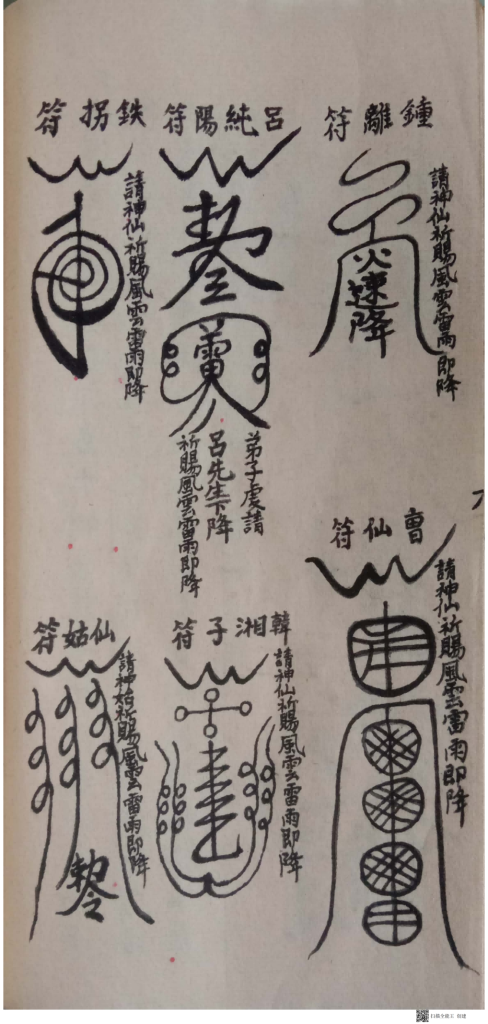 鐘離符
火速降
請神仙祈賜風雲雷雨即降
呂純陽符
敕令
雷
弟子虔請
呂先生下降
祈賜風雲雷雨即降
鉄拐符
請神仙祈賜風雲雷雨即降
曹仙符
請神仙祈賜風雲雷雨即降
韓湘子符
請神仙祈賜風雲雷雨即降
仙姑符
請神姑祈賜風雲雷雨即降
敕令
扫描全能王 创建